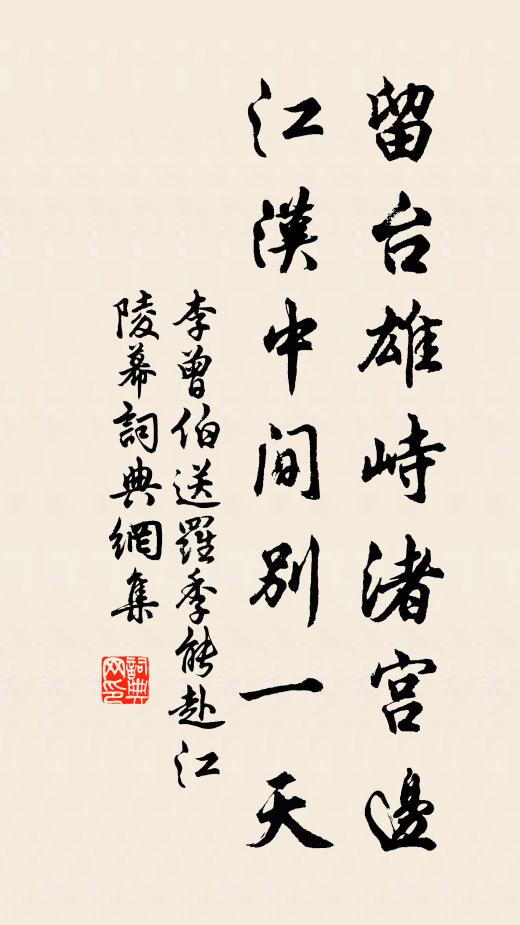 留台雄峙渚宫邊
江漢中間別一天
李曾伯送羅季能赴江
陵幕詞典網集
詞典网印